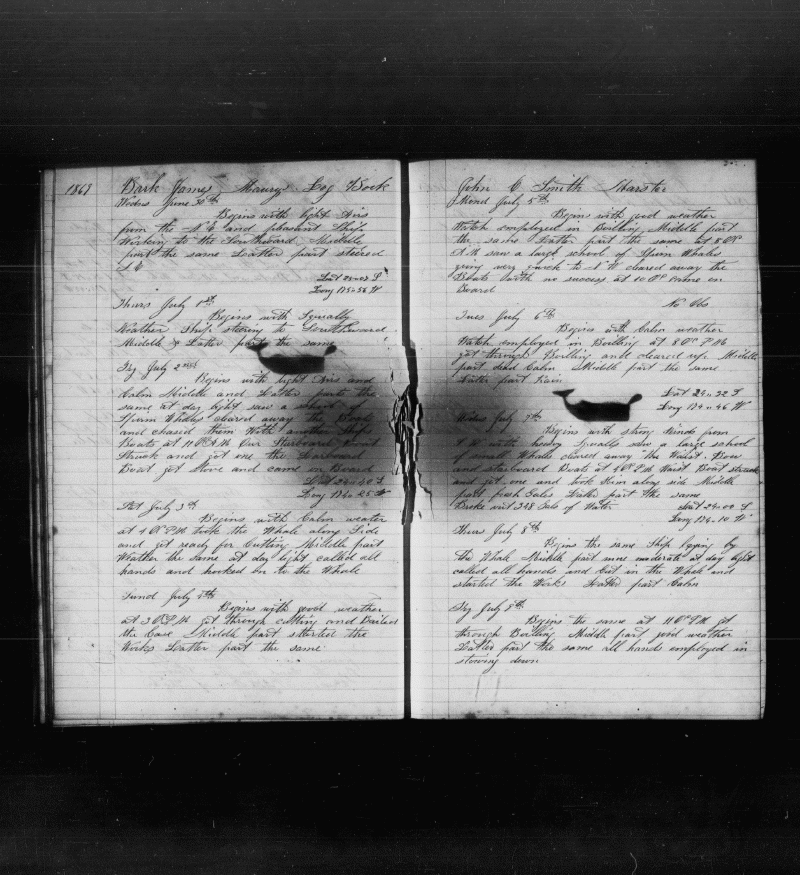 1869
Bark James Maury Log Book
Wedns June 30th
Begins with light Airs
from the N E and pleasant Ship
Working to the Southward Middle
part the same Latter part steered
S E
Thurs July 1st
Begins with Squally
Weather Ship steering to Southward
Middle & Latter part the same
Fry July 2nd
Begins with light Airs and
Calm Middle and Latter parts the
same at day light saw a school
Sperm Whales cleared away the Boats
and chased them With another Ships
Boats at 11 OC A M Our Starboard Boat
Struck and got one the Larboard
Boat got Stove and came on Board
Lat 29-40 S
Long 174-25 W
Sat July 3rd
Begins with Calm weater
at 4 OC P M took the Whale along Side
and got ready for Cutting Middle part
Weather the same at day light called all
hands and hooked on to the Whale
Sund July 4th
Begins with good weather
at 3 OC P M got through cutting and Bailed
the Case Middle part started the
Works Latter part the same
John C Smith Marster
Mond July 5th
Begins with good weather
Watch employed in Boiling Middle part
the same Latter part the same at 8 OC
A M saw a large school of Sperm Whales
going very quick to cleared away the
Boats with no success at 10 OC came on
Board
No Obs
Tues July 6th
Begins with Calm weather
Watch employed in Boiling at 8 OC P M
got through Boiling and cleared up Middle
part dead Calm Middle part the same
Latter part Rain
Lat 29-32 S
Long 174-46 W
Wedns July 7th
Begins with strong winds from
with heavy Squalls saw a large school
of small Whale cleared away the Waist Bow
and starboard Boats at 4 OC P M Waist Boat struck
and got one and took Him along side Middle
part fresh Gales Latter part the same
Broke out 348 Gals of Water
Lat 29-00 S
Long 174-10 W
Thurs July 8th
Begins the same Ship lying by
the Whale Middle part more moderate at day light
called all hands and Cut in the Whale and
started the Works Latter part Calm
Fry July 9th
Begins the same at 11 OC P M got
through Boiling Middle part good weather
Latter part the same all hands employed in
stowing down